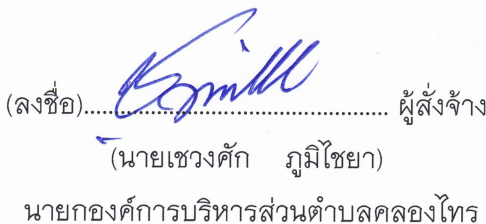 (ลงชื่อ)........................................ ผู้สั่งจ้าง
(นายเชวงศัก ภูมิไชยา)
นายกองค์การบริหารส่วนตำบลคลองไทร